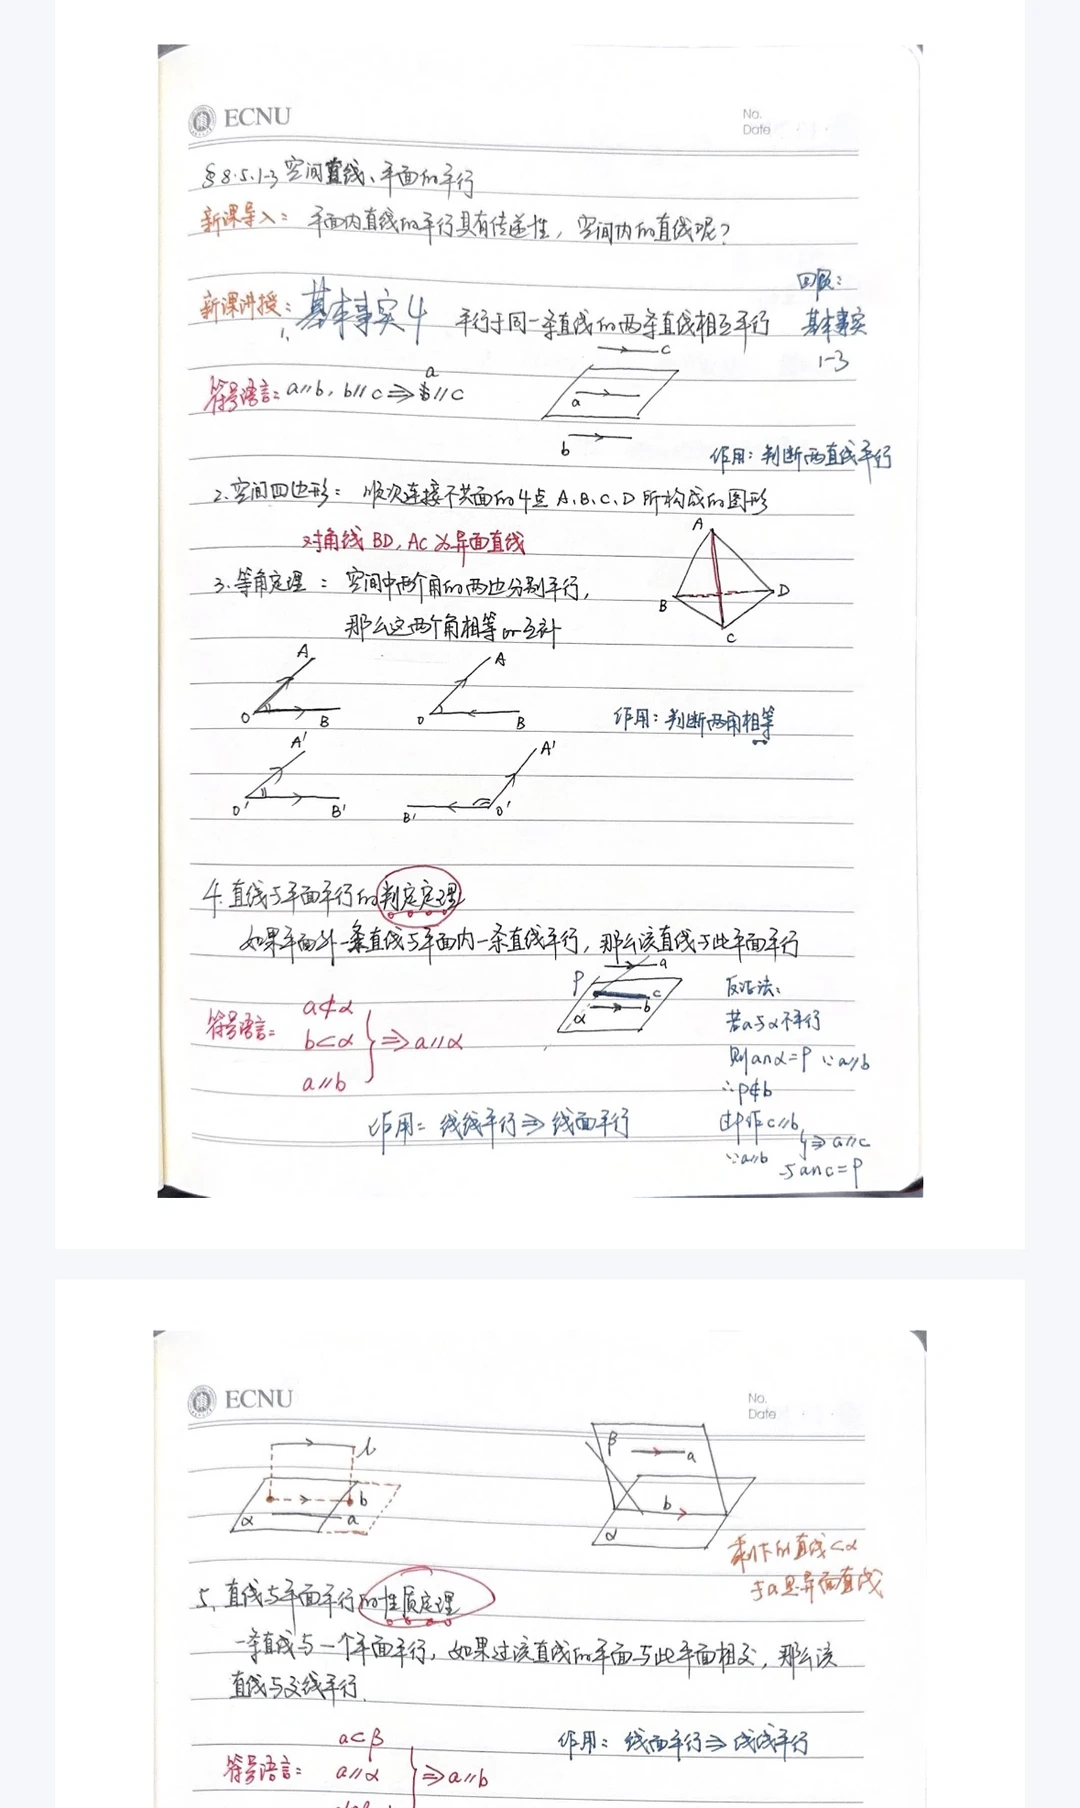 ECNU
No.
Date
§8.5.1-3 空间直线、平面的平行
新课导入： 平面内直线的平行具有传递性，空间内的直线呢？
新课讲授： 1. 基本事实4 平行于同一条直线的两条直线相互平行
回顾：
基本事实
1-3
符号语言：a//b，b//c⇒a//c
c
a
b
作用：判断两直线平行
2.空间四边形： 顺次连接不共面的4点 A、B、C、D 所构成的图形
对角线 BD，AC 为异面直线
A
B
D
C
3.等角定理： 空间中两个角的两边分别平行，
那么这两个角相等or互补
A
O
B
A
O
B
作用：判断两角相等
A'
O'
B'
A'
B'
O'
4.直线与平面平行的判定定理
如果平面外一条直线与平面内一条直线平行，那么该直线与此平面平行
符号语言：
a⊄α
b⊂α
a//b
⇒a//α
a
P
c
b
α
反证法：
若a与α不平行
则a∩α=P ∵a//b
∴P∉b
过P作c//b
∵a//b
⇒a//c
与a∩c=P
作用：线线平行⇒线面平行
ECNU
No.
Date
l
b
α
a
β
a
b
α
剩下的直线⊂α
与a是异面直线
5.直线与平面平行的性质定理
一条直线与一个平面平行，如果过该直线的平面与此平面相交，那么该
直线与交线平行.
作用：线面平行⇒线线平行
符号语言：
a⊂β
a//α
⇒a//b